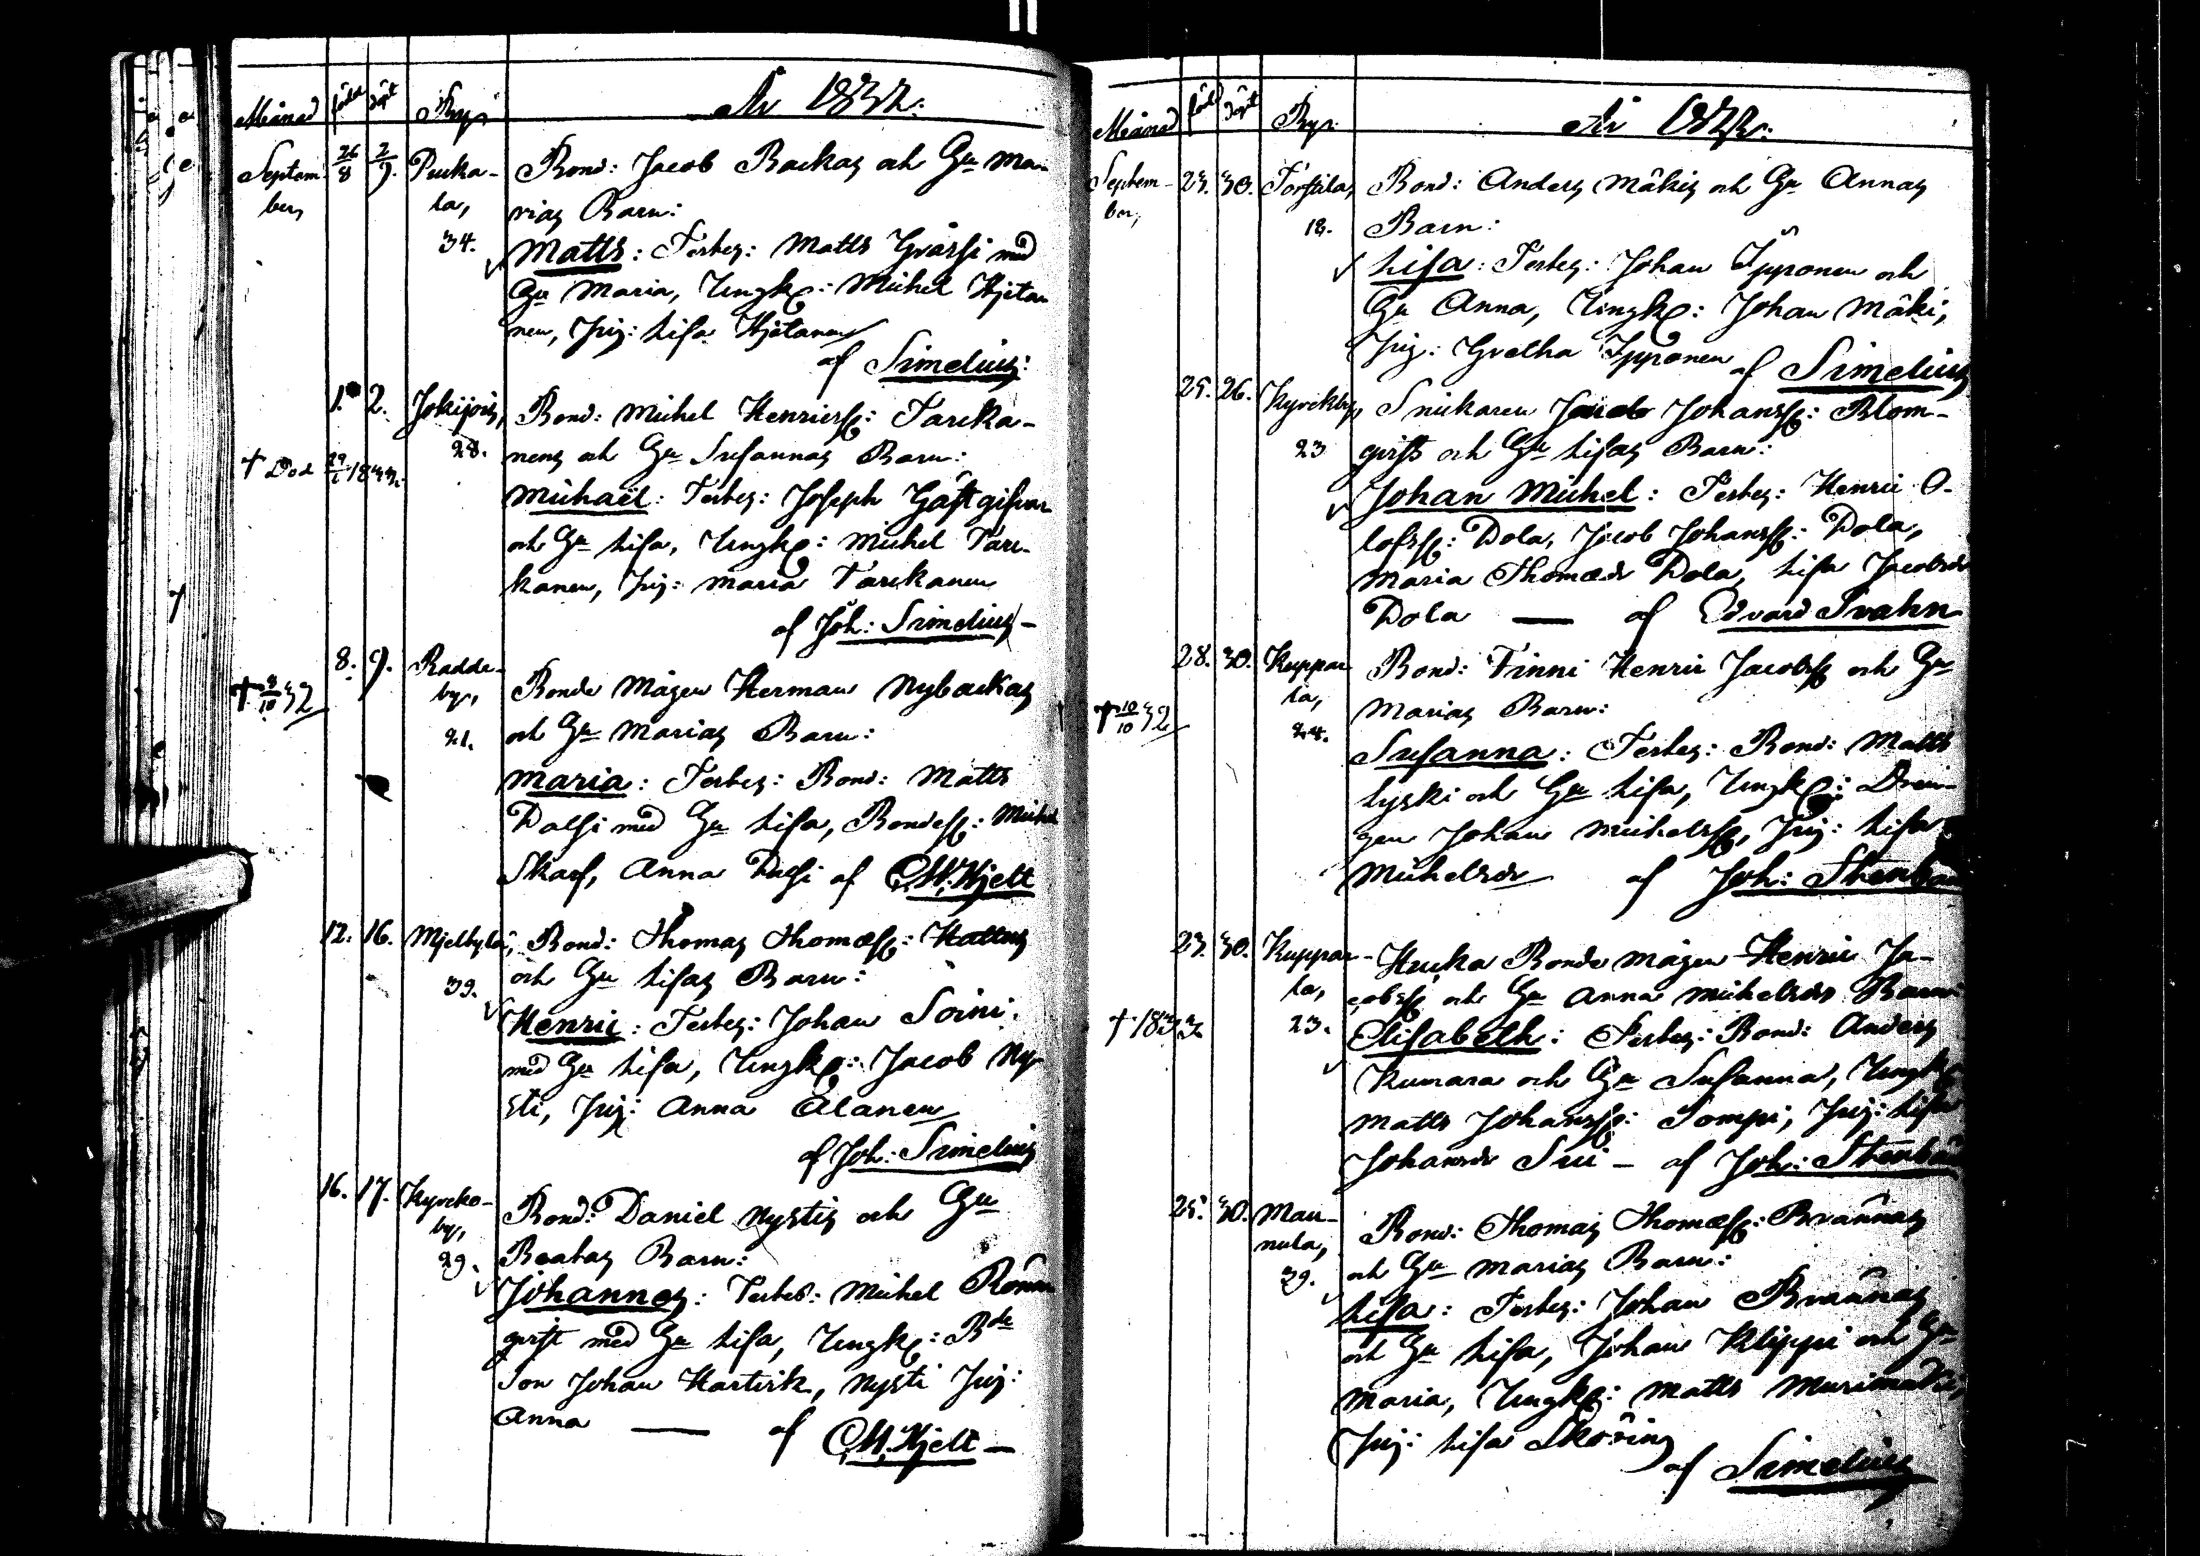 Månad född döpt Byn År 1832.
Septem- 26/8 2/9. Pucka- Bond: Jacob Backas och Hu Ma-
ber, la, rias Barn:
34. Matts: Testes: Matts Gvässi med
Hu Maria, Ungk: Michel Hjeta
nen, Pig: Lisa Hjetanen
af Simelius:
1. 2. Jokipois, Bond: Michel Henricss: Tarcka-
28. nens och Hu Susannas Barn:
† Död
Michaël: Testes: Joseph Gästgifvar
och Hu Lisa, Ungk: Michel Tarc-
kanen, Pig: Maria Tarckanen
af Joh: Simelius -
8. 9. Radde- Bonde Mågen Herman Nybackas
† 9/10 32 by,
21. och Hu Marias Barn:
Maria: Testes: Bond: Matts
Dalsi med Hu Lisa, Bondess: Michel
Skarf, Anna Dalsi af C.W. Hjelt
12. 16. Mjelbyla, Bond: Thomas Thomæss:
och Hu Lisas Barn:
39.
Henric: Testes: Johan Soini
med Hu Lisa, Ungk: Jacob Ny-
sti, Pig: Anna Alanen
af Joh: Simelius
16. 17. Kyrcko- Bond: Daniel Nystis och Hu
by,
29. Beatas Barn:
Johannes: Testes: Michel Rönn
qvist med Hu Lisa, Ungk: Bde
Son Johan Hartvik, Nysti Pig:
Anna — af C.W. Hjelt —
Månad född döpt Byn. År 1832.
Septem- 23. 30. Torttila, Bond: Anders Mäkis och Hu Annas
ber, 18. Barn:
Lisa: Testes: Johan Ypponen och
Hu Anna, Ungk: Johan Mäki,
Pig: Gretha Ypponen af Simelius
25. 26. Kyrckby, Snickaren Jacob Johanss: Blom-
23 qvists och Hu Lisas Barn:
Johan Michel: Testes: Henric O-
lofss: Dola, Jacob Johanss: Dola,
Maria Thomædr Dola, Lisa Jacobsdr
Dola — af Edvard Svahn
28. 30. Kuppar- Bond: Finni Henric Jacobss och Hu
la,
† 10/10 32 24. Marias Barn:
Susanna: Testes: Bond: Matts
Lyski och Hu Lisa, Ungk: Drän-
gen Johan Michelss, Pig: Lisa
Michelsdr af Joh: Stenbäck
23. 30. Kuppar- Hucka Bonde mågen Henric Ja-
la, cobss och Hu Anna Michelsdrs Barn
† 1833 23. Elisabeth: Testes: Bond: Anders
Kumara och Hu Susanna, Ungk
Matts Johanss: Sompi, Pig: Lisa
Johansdr Sui - af Joh: Stenbäck
25. 30. Man- Bond: Thomas Thomæss: Brännas
nula,
39. och Hu Marias Barn:
Lisa: Testes: Johan Brännas
och Hu Lisa, Johan Klippi och Hu
Maria, Ungk: Matts Murimäki,
Pig: Lisa Skoring
af Simelius